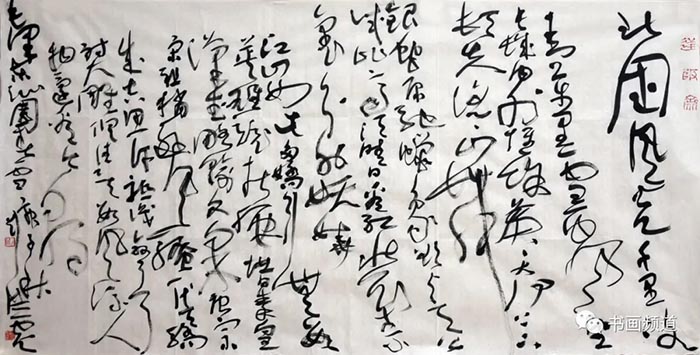 北国风光千里冰
封万里雪飘望
长城内外惟余莽莽大河上下
顿失滔滔山舞
银蛇原驰蜡象欲与天公
试比高须晴日看红装素
裹分外妖娆
江山如此多娇引無数
英雄竞折腰惜秦皇
汉武略输文采唐宗
宋祖稍逊风骚一代天骄
成吉思汗祗识弯弓
射大雕俱往矣数风流人
物还看今朝
毛泽东沁园春雪
书画频道